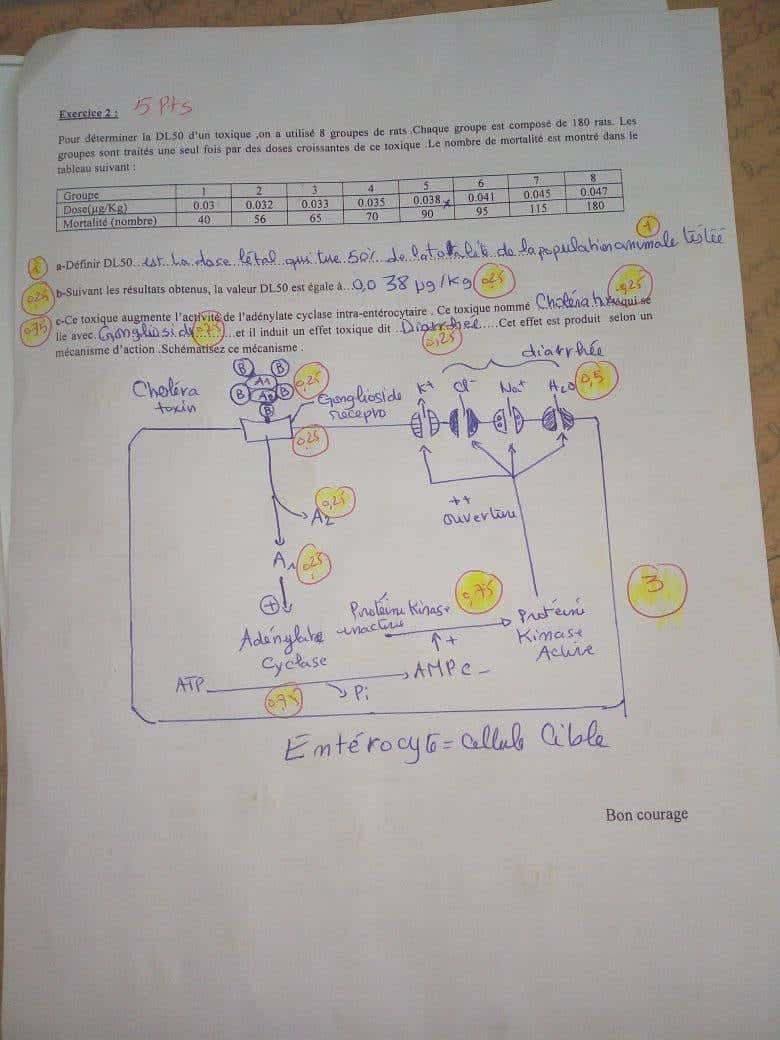 Exercice 2 : 5 Pts
Pour déterminer la DL50 d'un toxique ,on a utilisé 8 groupes de rats .Chaque groupe est composé de 180 rats. Les
groupes sont traités une seul fois par des doses croissantes de ce toxique .Le nombre de mortalité est montré dans le
tableau suivant :
Groupe 1 2 3 4 5 6 7 8
Dose(µg/Kg) 0.03 0.032 0.033 0.035 0.038 x 0.041 0.045 0.047
Mortalité (nombre) 40 56 65 70 90 95 115 180
1
a-Définir DL50...est La dose létal qui tue 50% de la totalité de la population animale testée
0,25 b-Suivant les résultats obtenus, la valeur DL50 est égale à...0,038 µg/kg 0,25
0,25
0,75 c-Ce toxique augmente l'activité de l'adénylate cyclase intra-entérocytaire . Ce toxique nommé Choléra qui se
lie avec Ganglioside et il induit un effet toxique dit ..Diarrhée.....Cet effet est produit selon un
mécanisme d'action .Schématisez ce mécanisme .
0,25
diarrhée
B B
A1 0,25
B A2 B
B
Choléra
toxin
Ganglioside
récepto
K+ Cl- Na+ H2O 0,5
0,25
0,25
A2
++
ouverture
A1 0,25
3
+
Protéine Kinase 0,75
inactive
Protéine
Kinase
Active
Adénylate
Cyclase
+
ATP AMPc
Pi
Entérocyte = cellule Cible
Bon courage